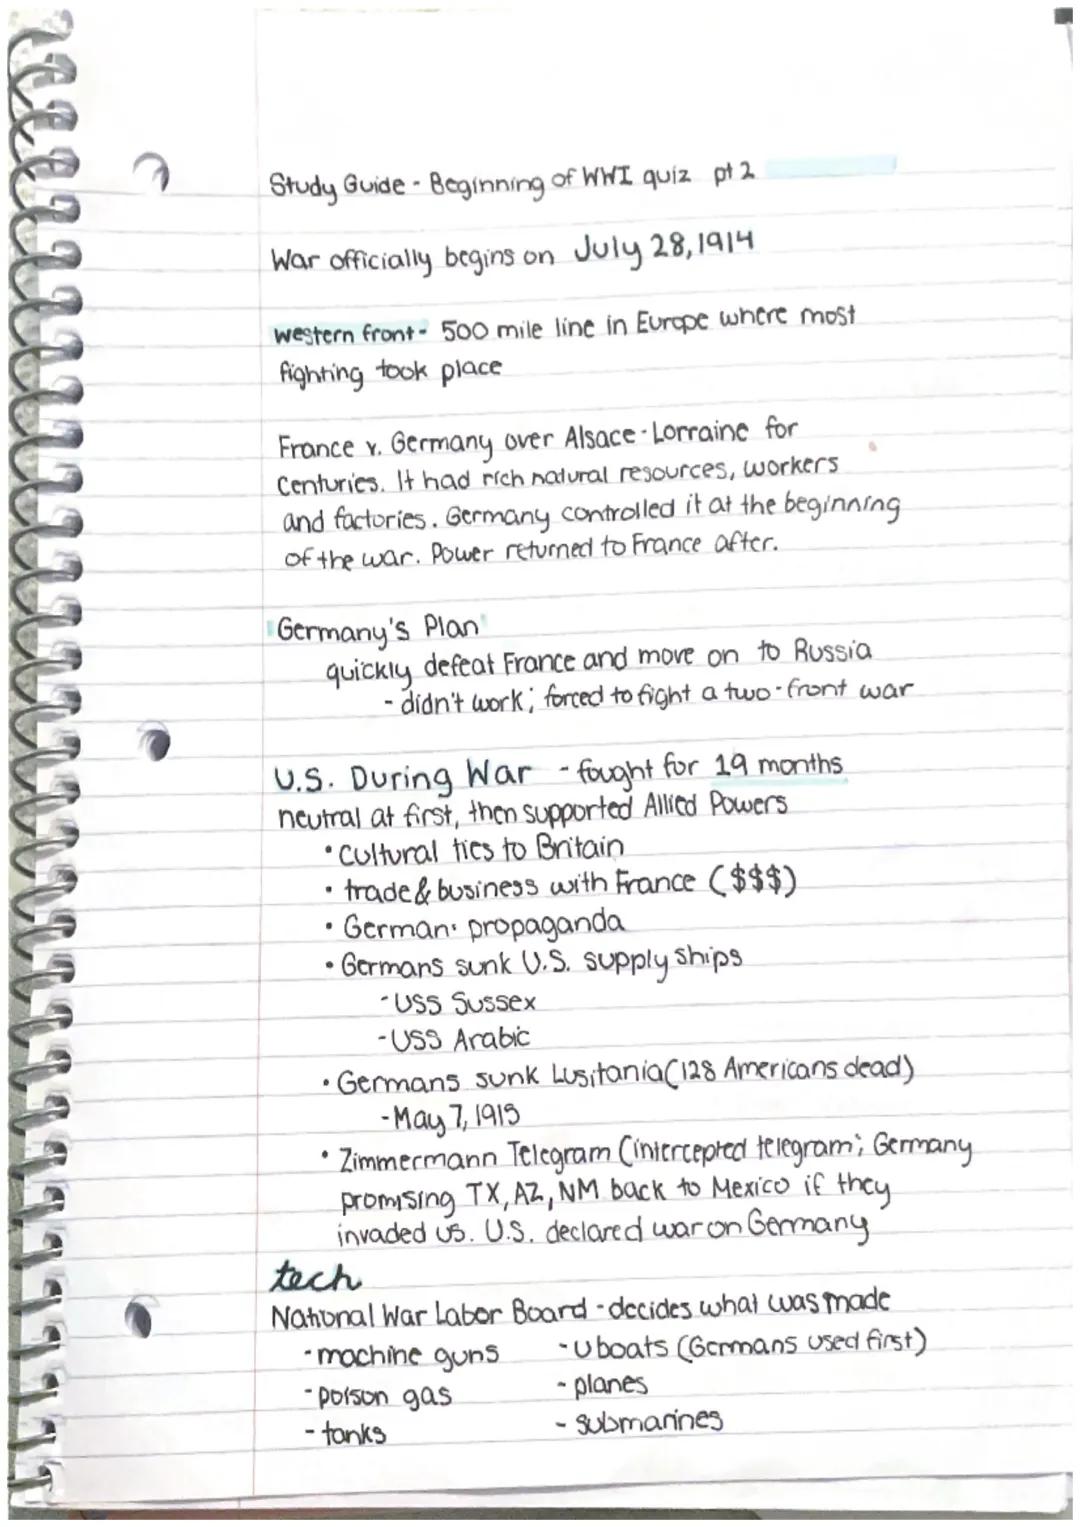 Study Guide - Beginning of WWI quiz pt 2
War officially begins on July 28, 1914
western front - 500 mile line in Europe where most
fighting took place
France v. Germany over Alsace-Lorraine for
centuries. It had rich natural resources, workers
and factories. Germany controlled it at the beginning
of the war. Power returned to France after.
Germany's Plan
quickly defeat France and move on to Russia
- didn't work; forced to fight a two-front war
U.S. During War - fought for 19 months
neutral at first, then supported Allied Powers
• cultural ties to Britain
• trade & business with France ($$$)
• German propaganda
• Germans sunk U.S. supply ships
- USS Sussex
- USS Arabic
• Germans sunk Lusitania (128 Americans dead)
- May 7, 1915
• Zimmermann Telegram (intercepted telegram; Germany
promising TX, AZ, NM back to Mexico if they
invaded US. U.S. declared war on Germany
tech
National War Labor Board - decides what was made
- machine guns - U boats (Germans used first)
- poison gas - planes
- tanks - submarines